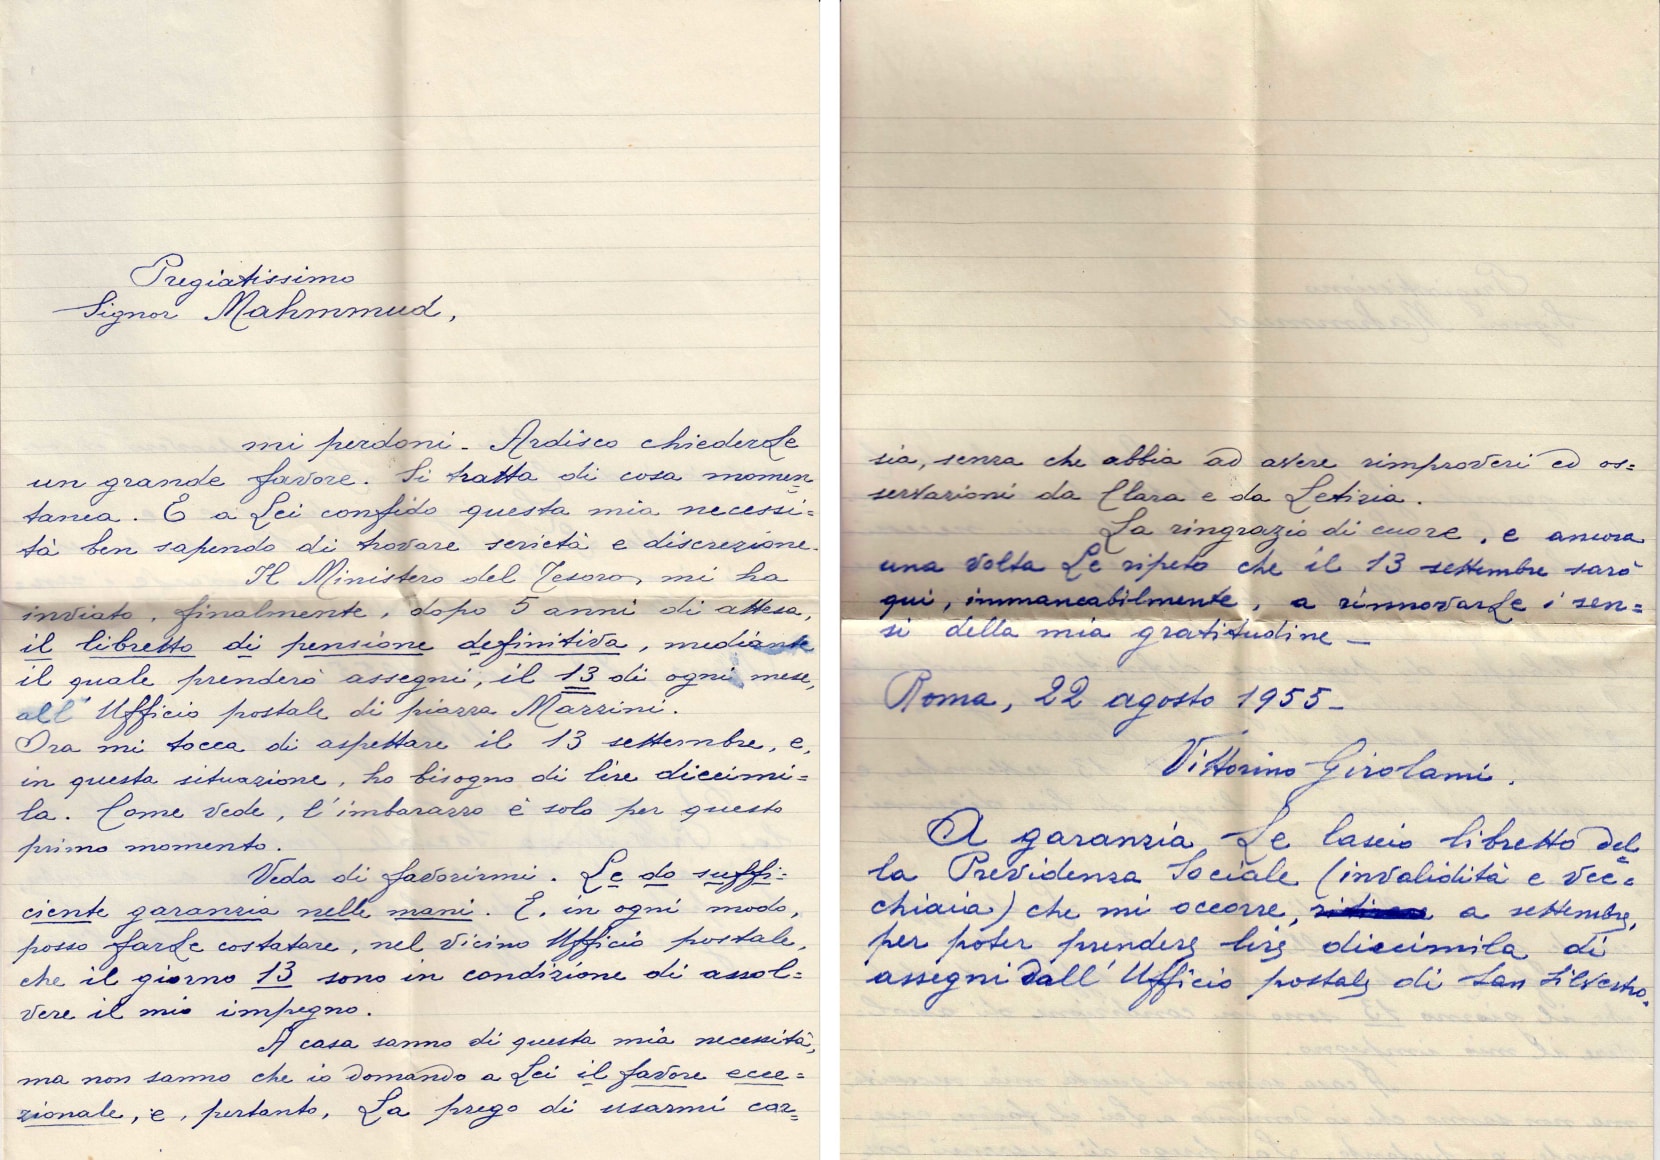 Pregiatissimo
Signor Mahmmud,
mi perdoni - Ardisco chiederLe
un grande favore. Si tratta di cosa momen=
tanea. E a Lei confido questa mia necessi=
tà ben sapendo di trovare serietà e discrezione.
Il Ministero del Tesoro, mi ha
inviato, finalmente, dopo 5 anni di attesa,
il libretto di pensione definitiva, mediante
il quale prenderò assegni, il 13 di ogni mese,
all'Ufficio postale di piazza Mazzini.
Ora mi tocca di aspettare il 13 settembre, e,
in questa situazione, ho bisogno di lire diecimi=
la. Come vede, l'imbarazzo è solo per questo
primo momento.
Veda di favorirmi. Le do suffi=
ciente garanzia nelle mani. E, in ogni modo,
posso farLe costatare, nel vicino Ufficio postale,
che il giorno 13 sono in condizione di assol=
vere il mio impegno.
A casa sanno di questa mia necessità,
ma non sanno che io domando a Lei il favore ecce=
zionale, e, pertanto, La prego di usarmi cor=
sia, senza che abbia ad avere rimproveri ed os=
servazioni da Clara e da Letizia.
La ringrazio di cuore, e ancora
una volta Le ripeto che il 13 settembre sarò
qui, immancabilmente, a rinnovarLe i sen=
si della mia gratitudine -
Roma, 22 agosto 1955 -
Vittorino Girolami.
A garanzia Le lascio libretto del=
la Previdenza Sociale (invalidità e vec=
chiaia) che mi occorre, a settembre,
per poter prendere lire diecimila di
assegni dall'Ufficio postale di San Silvestro.